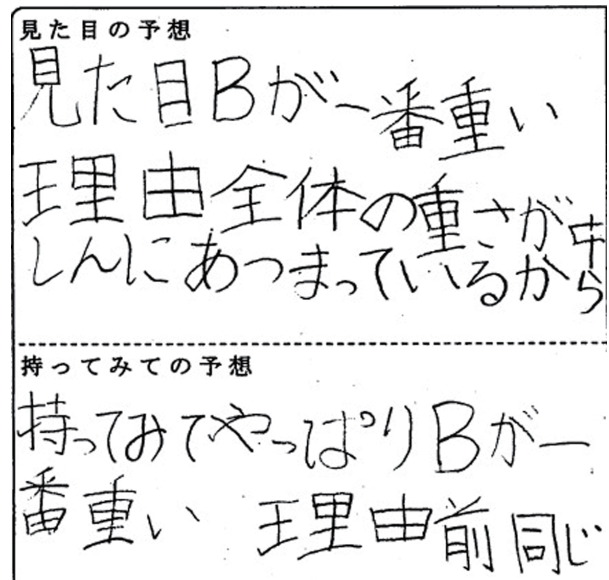 見た目の予想
見た目Bが一番重い
理由全体の重さが中
しんにあつまっているから
持ってみての予想
持ってみてやっぱりBが一
番重い 理由前同じ